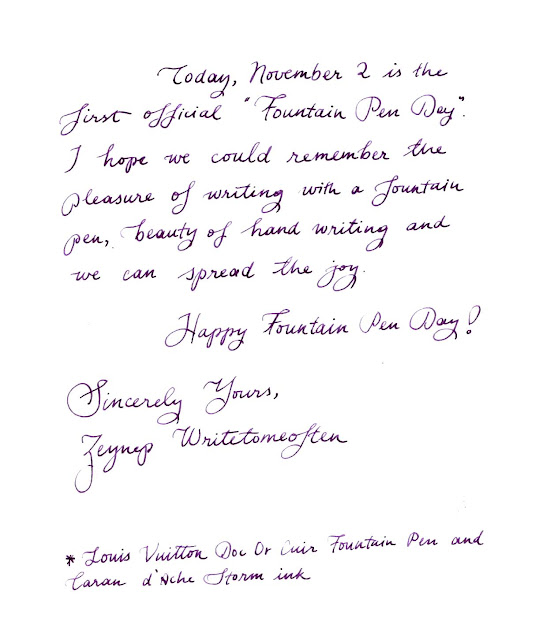 Today, November 2 is the
first official "Fountain Pen Day".
I hope we could remember the
pleasure of writing with a fountain
pen, beauty of hand writing and
we can spread the joy.
Happy Fountain Pen Day!
Sincerely Yours,
Zeynep Writetomeoften
* Louis Vuitton Doc Or Cuir Fountain Pen and
Caran d'Ache Storm ink